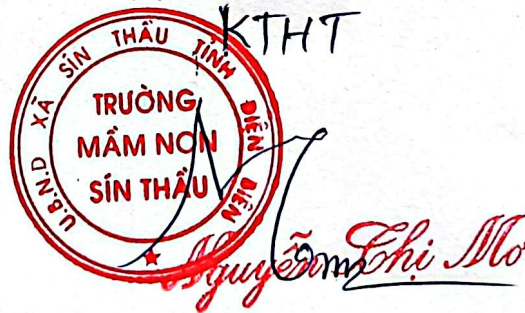 KTHT
U.B.N.D XÃ SÍN THẦU TỈNH ĐIỆN BIÊN
TRƯỜNG
MẦM NON
SÍN THẦU
Nguyễn Thị Mơ